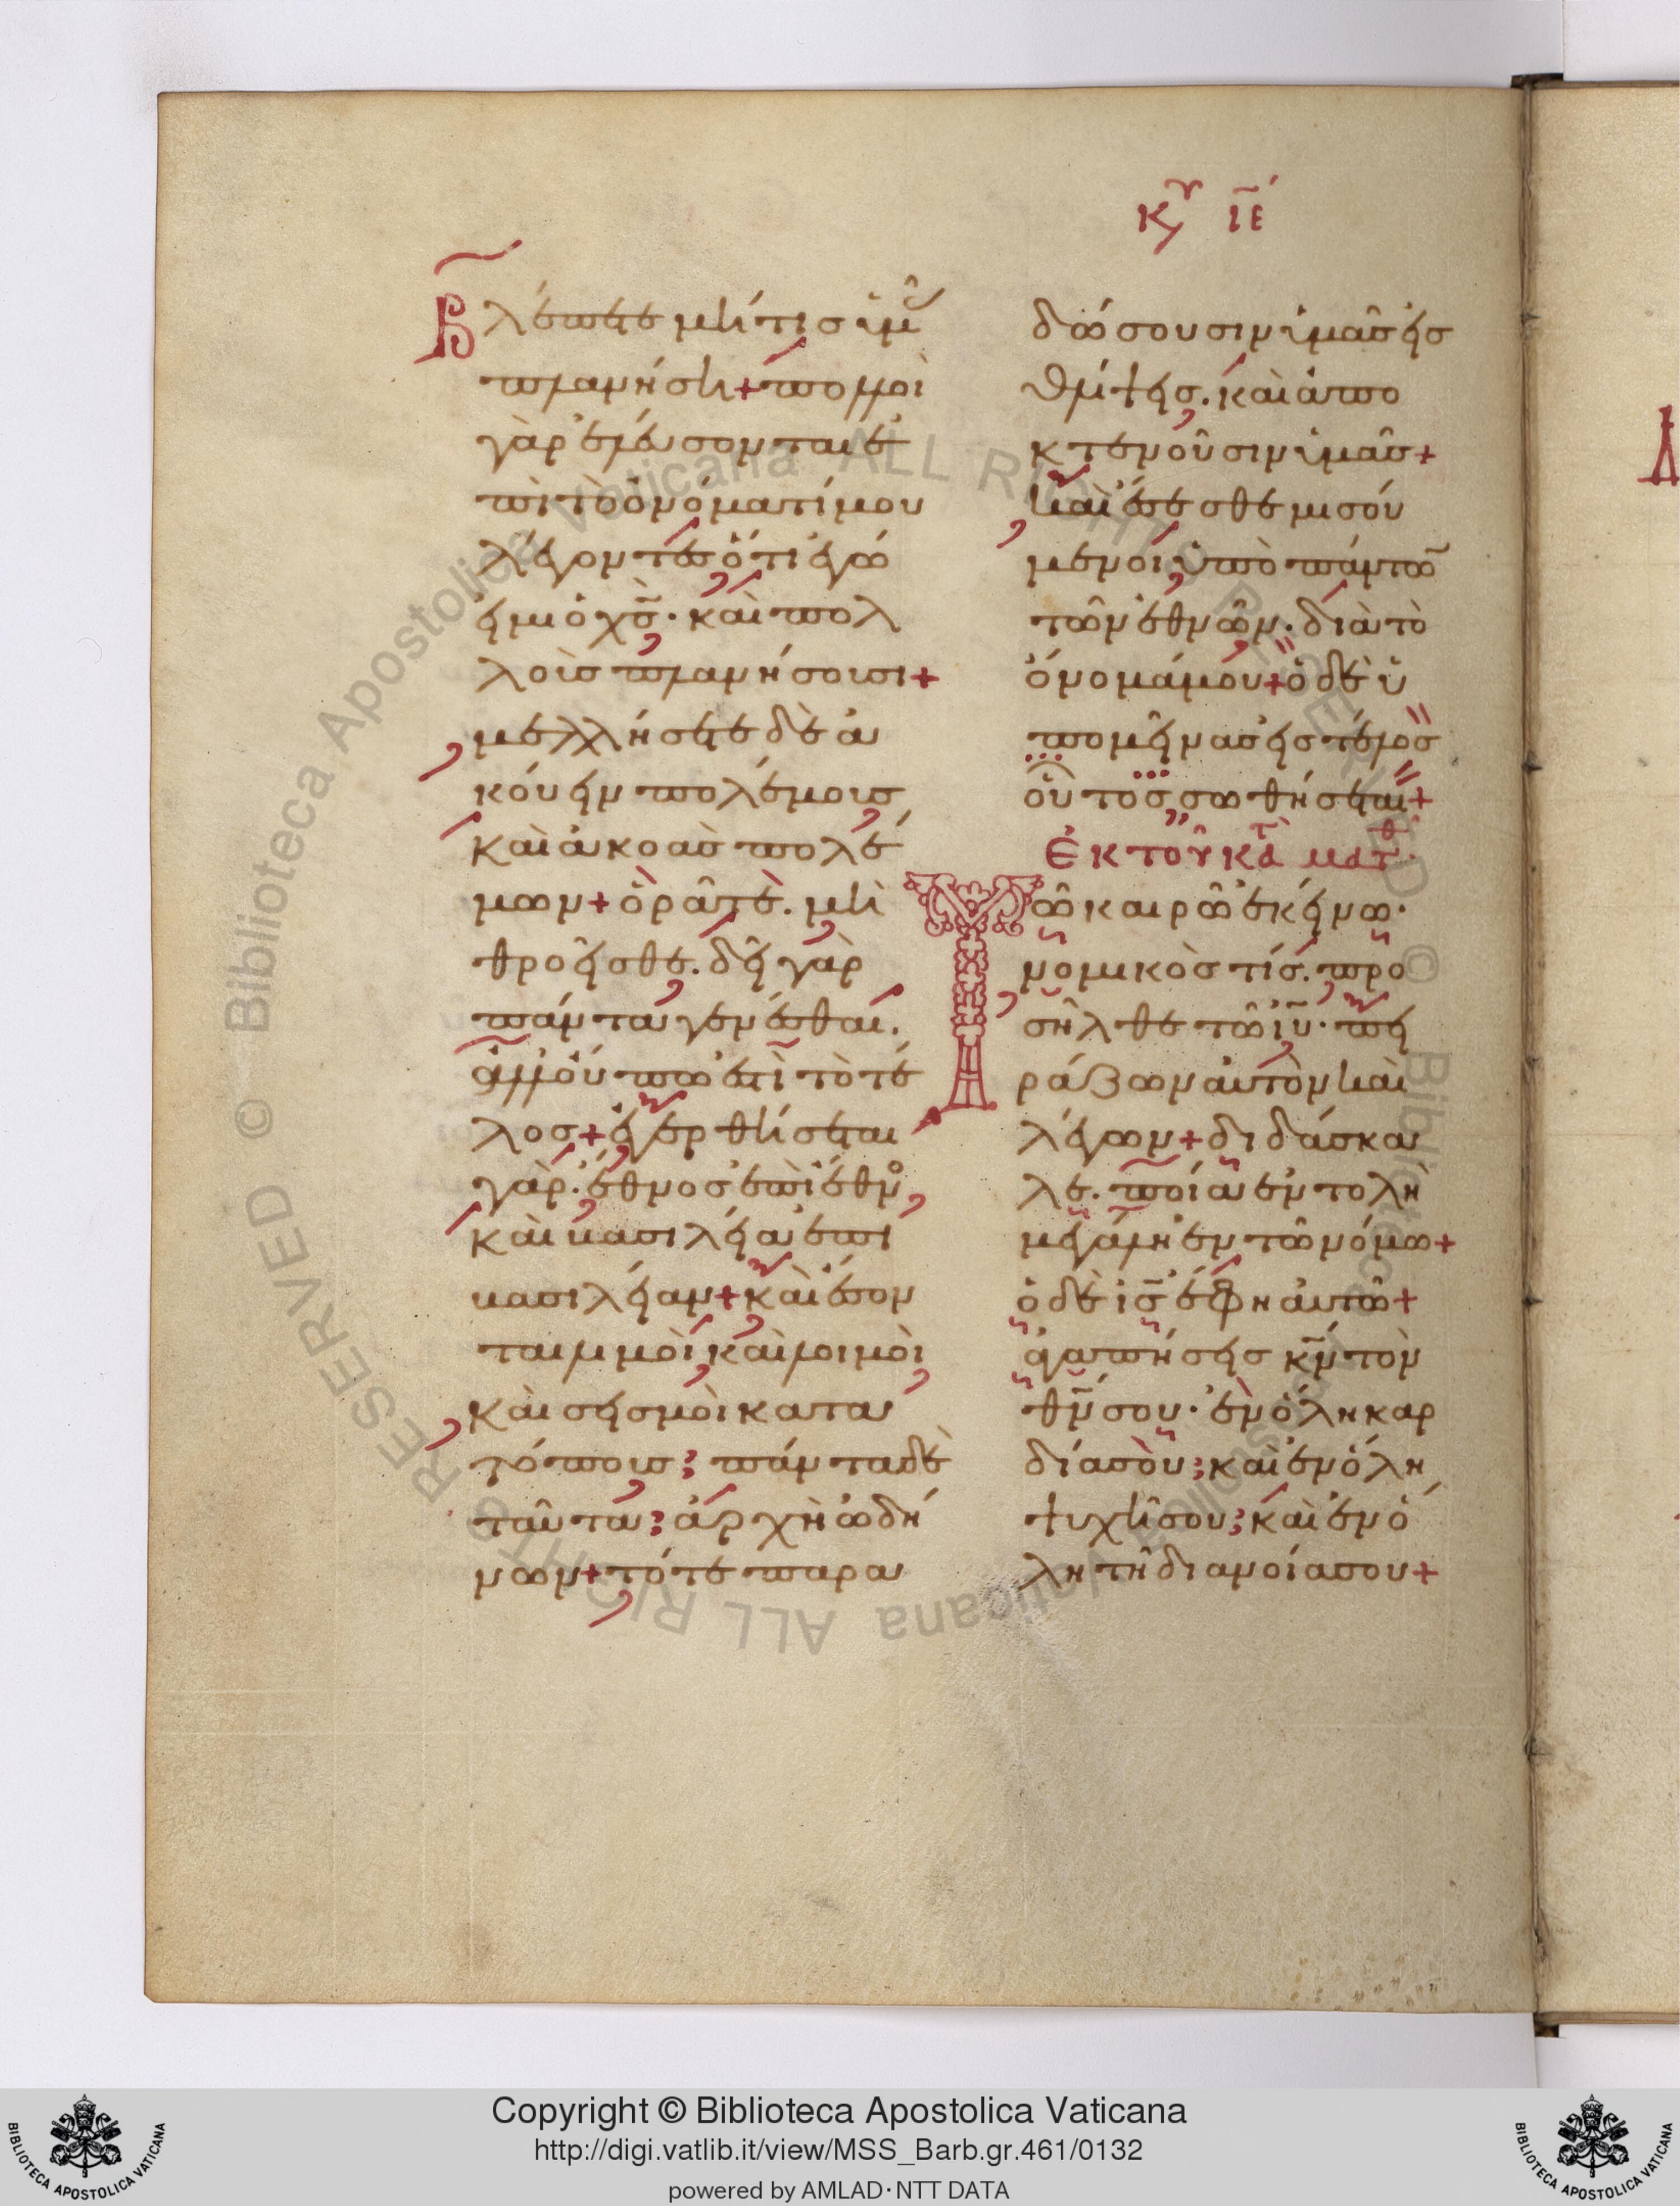 κυ ιε
Βλέπετε μή τισ ϊμ
πλανήση + πολλοὶ
γὰρ ἐλεύσονται ἐ
πὶ τὸ ὀνόματί μου
λέγοντεσ ὅτι ἐγώ
ἐμι ὁ χσ · καὶ πολ
λοὶσ πλανήσοισι +
μελλήσετε δὲ ἀ
κούειν πολέμοισ
καὶ ἀκοὰσ πολέ
μων + ὁρᾶτὲ . μὴ
θροεῖσθε . δεῖ γὰρ
πάντα γενέσθαι .
ἀλλ οὔπω ἐστὶ τὸ τέ
λοσ + ἐγερθήσεται
γὰρ · ἔθνοσ ἐπὶ ἔθνο
καὶ βασιλεία ἐπι
βασιλείαν + καὶ ἔσον
ται λιμοὶ καὶ λοιμοὶ
καὶ σεισμοὶ κατα
τόποισ ; πάντα δὲ
ταῦτα ; ἀρχὴ ὠδή
νων + τότε παρα
δώσουσιν ϊμᾶσ εἰσ
θλίψεισ . καὶ ἀπο
κτενοῦσιν ϊμᾶσ +
καὶ ἔσεσθε μισού
μενοι ὑπὸ πάντω
τῶν ἐθνῶν . διὰ τὸ
ὄνομά μου + ὁ δὲ ὑ
πομείνασ εἰσ τέλοσ
οὗτοσ σωθήσεται +
Ἐκ τοῦ κα ματθ
Τῶ καιρῶ ἐκείνω ·
νομικόσ τίσ . προ
σῆλθε τῶ ιυ · πει
ράζων αὐτὸν καὶ
λέγων + διδάσκα
λε . ποία ἐντολὴ
μεγάλη ἐν τῶ νόμω +
ὁ δὲ ισ ἔφη αὐτῶ +
ἀγαπήσεισ κν τὸν
θν σου · ἐν ὅλη καρ
δία σου ; καὶ ἐν ὅλη
ψυχῆ σου ; καὶ ἐν ὅ
λη τῆ διανοία σου +
Copyright © Biblioteca Apostolica Vaticana
http://digi.vatlib.it/view/MSS_Barb.gr.461/0132
powered by AMLAD·NTT DATA